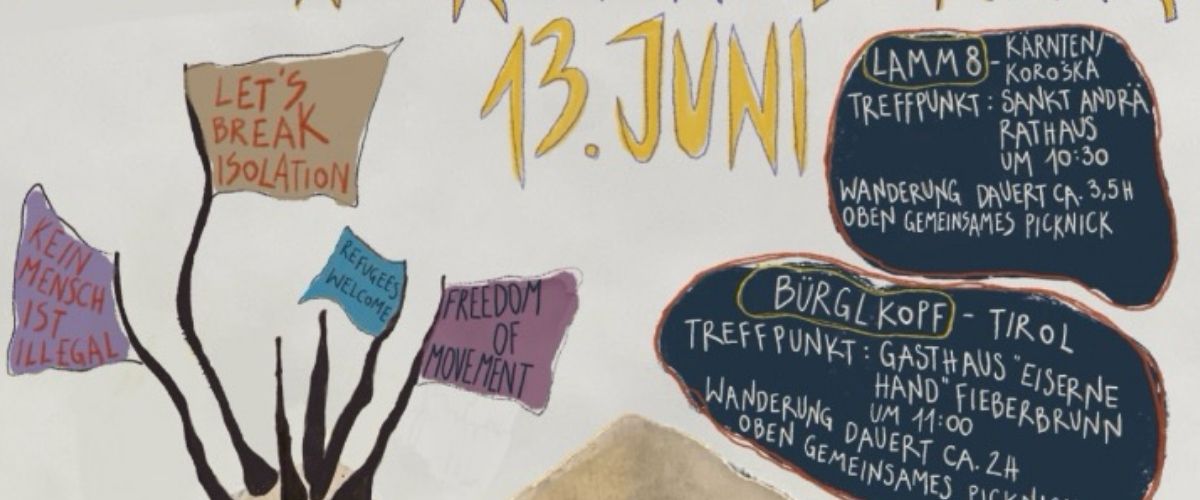 13. JUNI
LET'S
BREAK
ISOLATION
KEIN
MENSCH
IST
ILLEGAL
REFUGEES
WELCOME
FREEDOM
OF
MOVEMENT
LAMM 8 - KÄRNTEN/
KOROŠKA
TREFFPUNKT: SANKT ANDRÄ
RATHAUS
UM 10:30
WANDERUNG DAUERT CA. 3,5H
OBEN GEMEINSAMES PICKNICK
BÜRGLKOPF - TIROL
TREFFPUNKT: GASTHAUS "EISERNE
HAND" FIEBERBRUNN
UM 11:00
WANDERUNG DAUERT CA. 2H
OBEN GEMEINSAMES PICKNICK